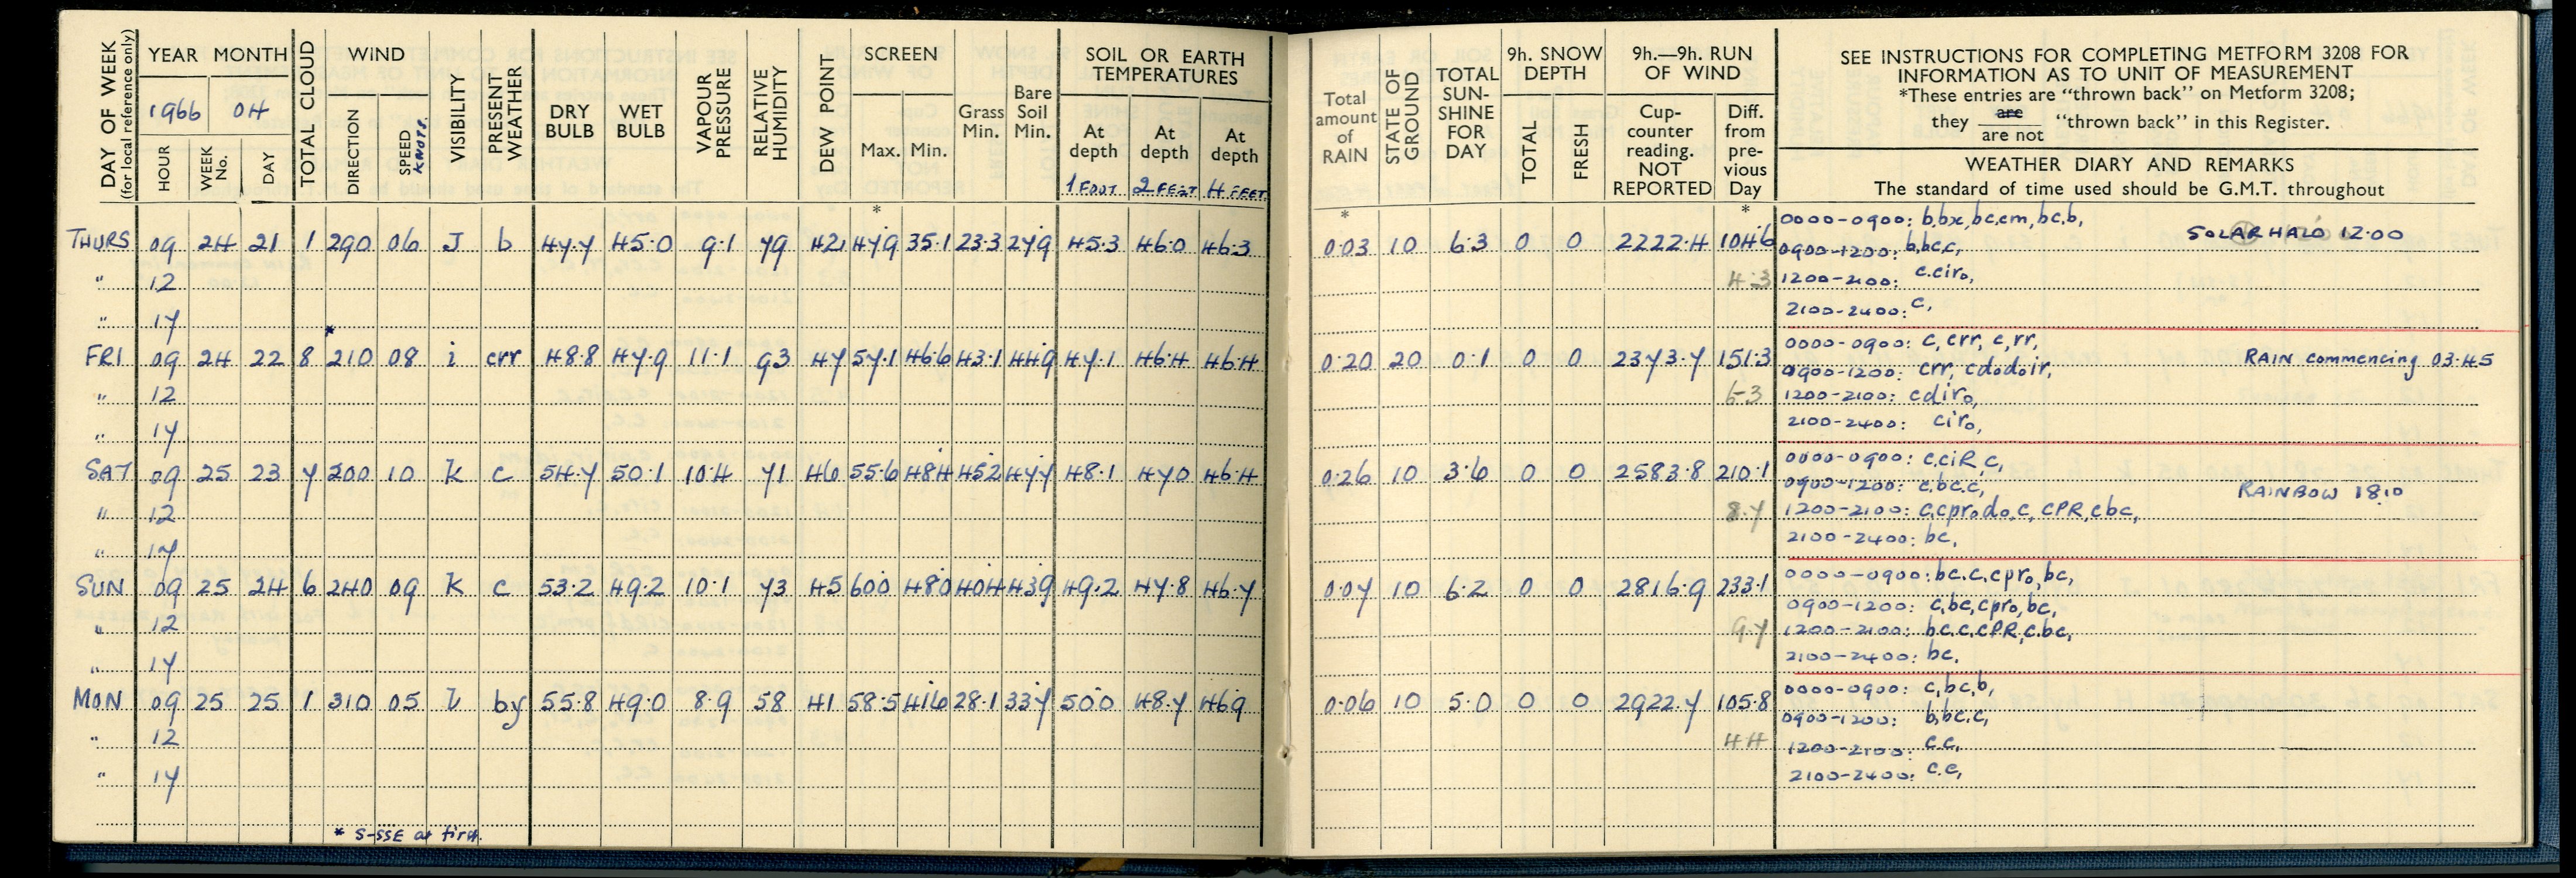 DAY OF WEEK
(for local reference only)
YEAR MONTH
1966 04
HOUR
WEEK No.
DAY
TOTAL CLOUD
WIND
DIRECTION
SPEED KNOTS.
VISIBILITY
PRESENT WEATHER
DRY BULB
WET BULB
VAPOUR PRESSURE
RELATIVE HUMIDITY
DEW POINT
SCREEN
Max. Min.
Grass Min.
Bare Soil Min.
SOIL OR EARTH
TEMPERATURES
At depth 1 FOOT
At depth 2 FEET
At depth 4 FEET
Total amount of RAIN
STATE OF GROUND
TOTAL SUN-SHINE FOR DAY
9h. SNOW DEPTH
TOTAL
FRESH
9h.—9h. RUN OF WIND
Cup-counter reading. NOT REPORTED
Diff. from pre-vious Day
SEE INSTRUCTIONS FOR COMPLETING METFORM 3208 FOR
INFORMATION AS TO UNIT OF MEASUREMENT
*These entries are "thrown back" on Metform 3208;
they are / are not "thrown back" in this Register.
WEATHER DIARY AND REMARKS
The standard of time used should be G.M.T. throughout
* * *
THURS 09 24 21 1 290 06 J b 47.7 45.0 9.1 79 42 47.9 35.1 23.3 27.9 45.3 46.0 46.3 0.03 10 6.3 0 0 2222.4 104.6
0000-0900: b,bx,bc,cm,bc,b,
SOLAR HALO 12.00
0900-1200: b,bc,c,
" 12 4.3 1200-2100: c.ciro,
" 17 2100-2400: c,
*
FRI 09 24 22 8 210 08 i crr 48.8 47.9 11.1 93 47 57.1 46.6 43.1 44.9 47.1 46.4 46.4 0.20 20 0.1 0 0 2373.7 151.3
0000-0900: c, crr, c,rr,
RAIN commencing 03.45
0900-1200: crr, cdodoir,
" 12 6.3 1200-2100: cdiro,
" 17 2100-2400: ciro,
SAT 09 25 23 7 200 10 K c 54.7 50.1 10.4 71 46 55.6 48.4 45.2 47.7 48.1 47.0 46.4 0.26 10 3.6 0 0 2583.8 210.1
0000-0900: c,ciR,c,
0900-1200: c,bc.c,
RAINBOW 1810
" 12 8.7 1200-2100: c,cprodo,c, CPR,cbc,
" 17 2100-2400: bc,
SUN 09 25 24 6 240 09 K c 53.2 49.2 10.1 73 45 60.0 48.0 40.4 43.9 49.2 47.8 46.7 0.07 10 6.2 0 0 2816.9 233.1
0000-0900: bc.c.cpro,bc,
0900-1200: c,bc,cpro,bc,
" 12 9.7 1200-2100: bc.c.CPR,c.bc,
" 17 2100-2400: bc,
MON 09 25 25 1 310 05 l by 55.8 49.0 8.9 58 41 58.5 41.6 28.1 33.7 50.0 48.7 46.9 0.06 10 5.0 0 0 2922.7 105.8
0000-0900: c,bc,b,
0900-1200: b,bc.c,
" 12 4.4 1200-2100: c.c,
" 17 2100-2400: c.c,
* S-SSE at first.